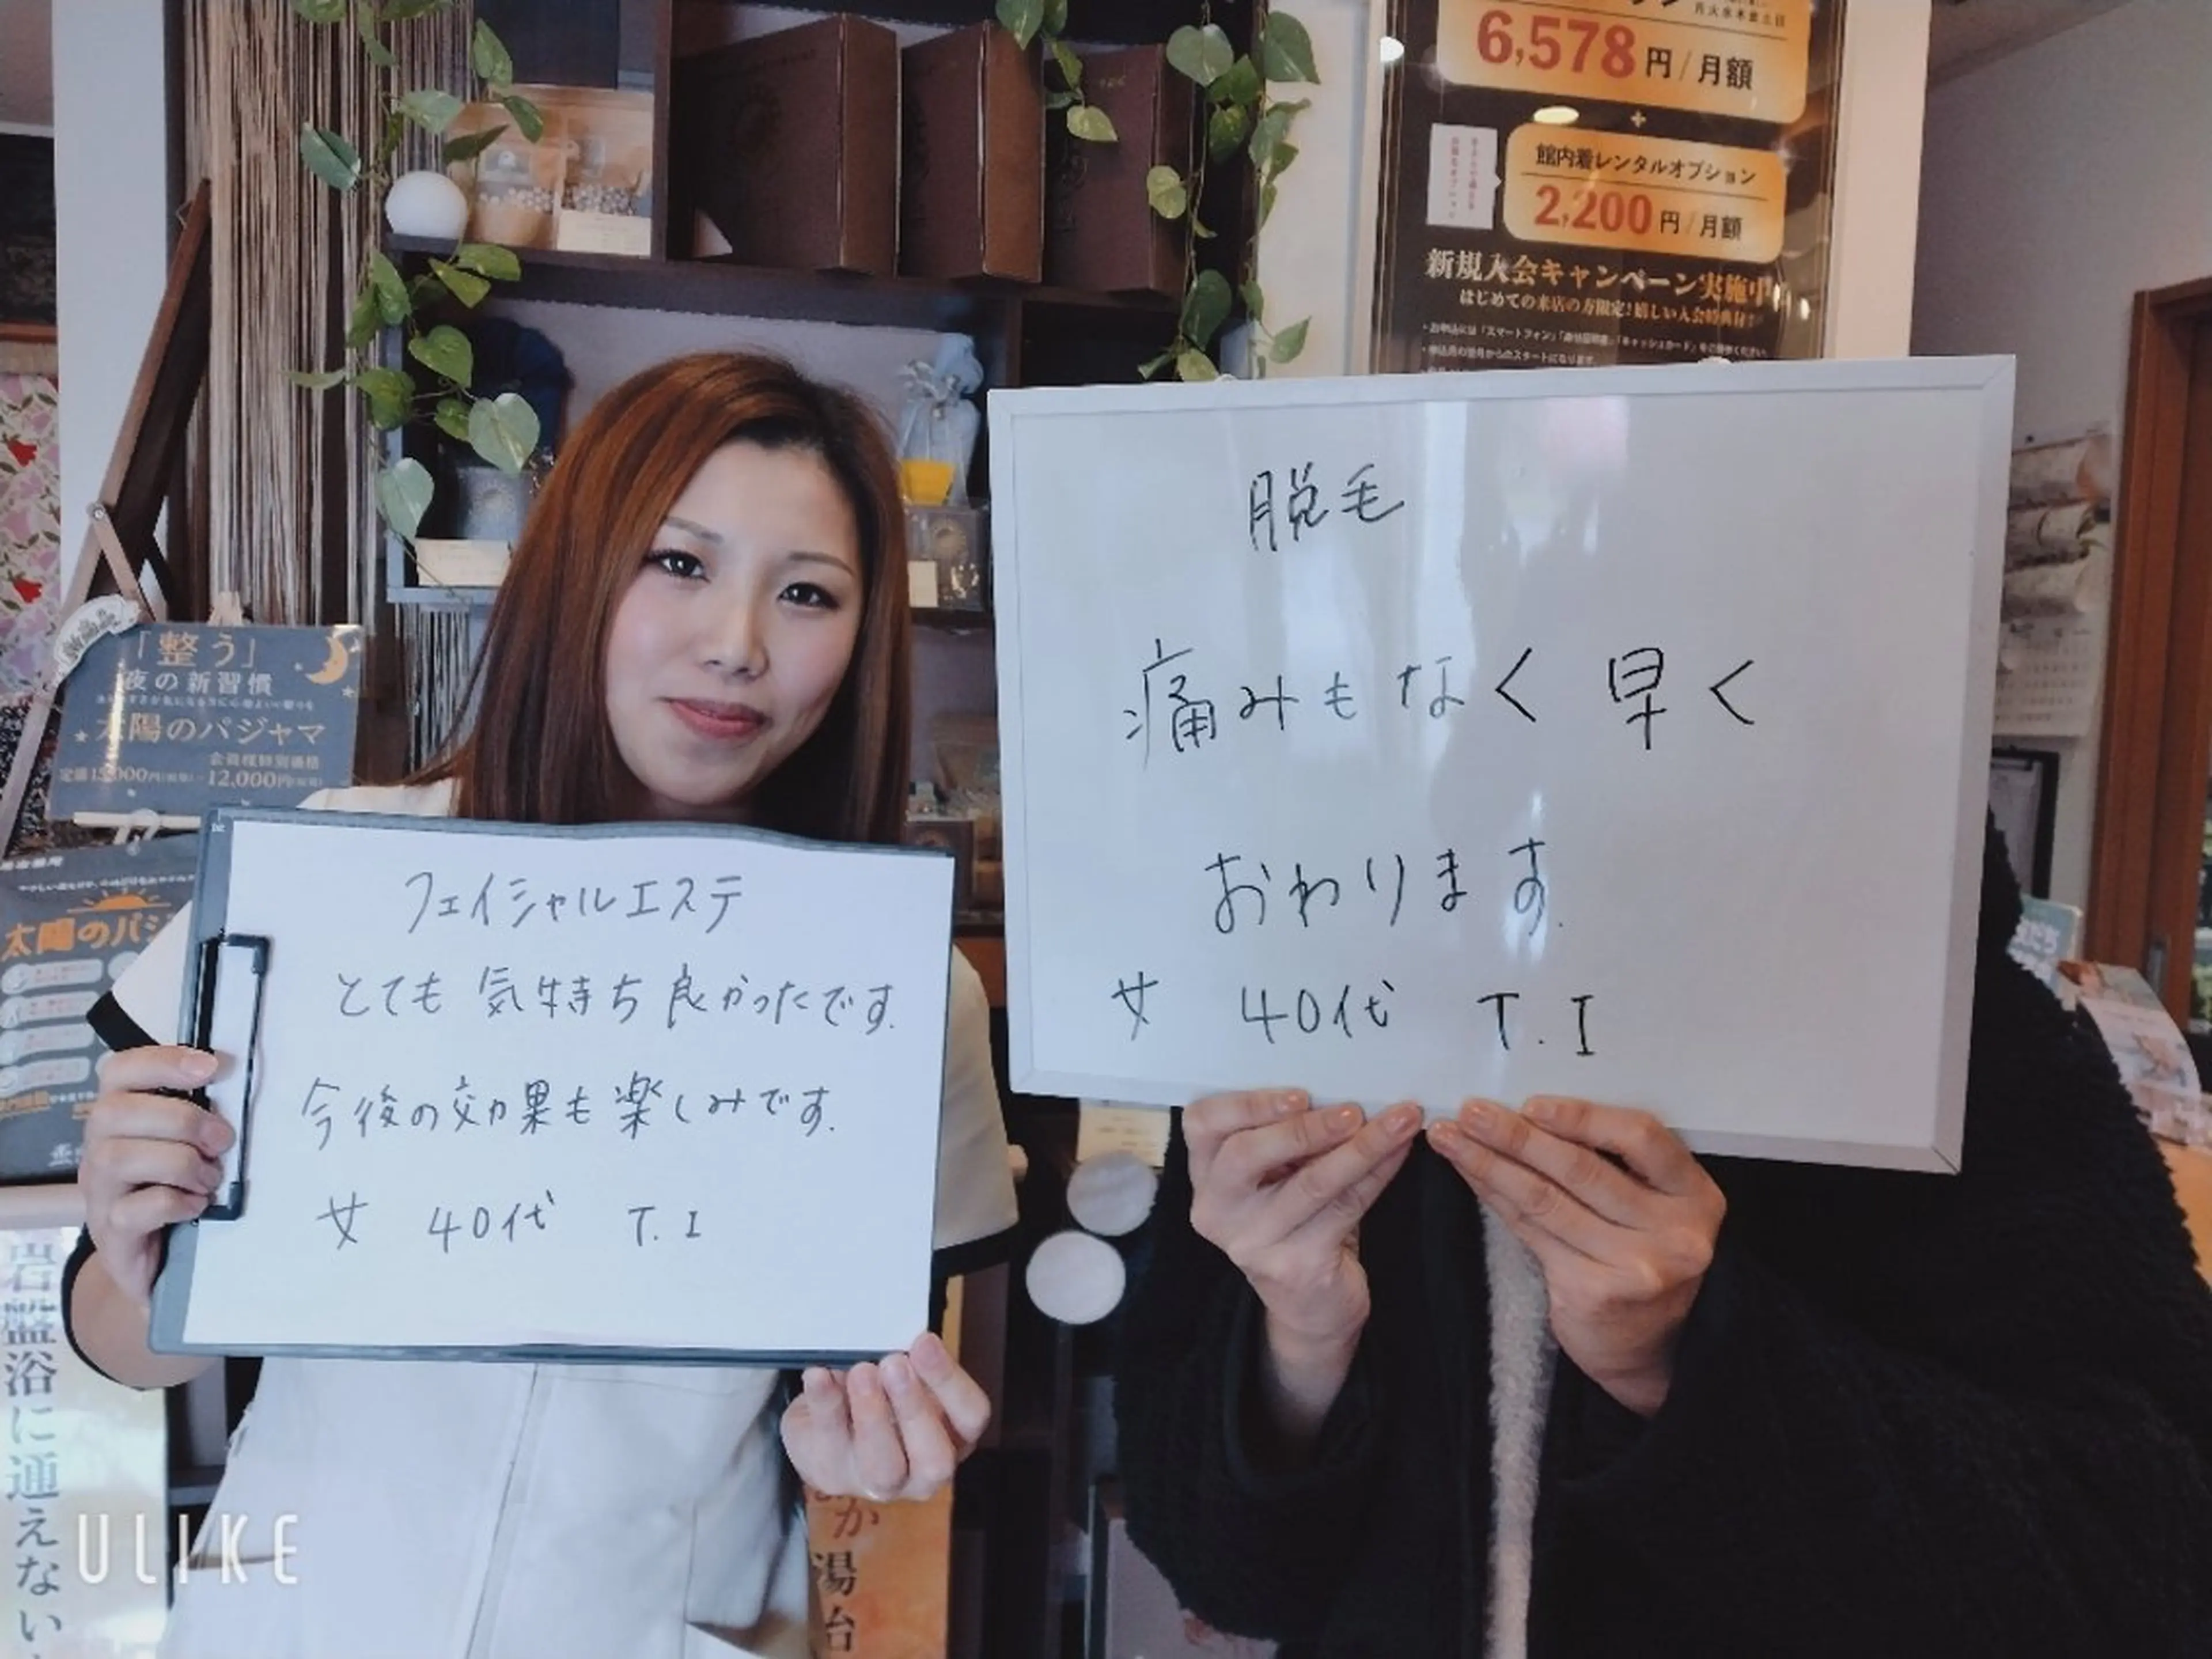 6,578円/月額
+
館内着レンタルオプション
2,200円/月額
新規入会キャンペーン実施中
はじめての来店の方限定!嬉しい入会特典付!
「整う」
夜の新習慣
太陽のパジャマ
会員様特別価格
12,000円
太陽のパジ
フェイシャルエステ
とても気持ち良かったです.
今後の効果も楽しみです.
女 40代 T.I
脱毛
痛みもなく早く
おわります.
女 40代 T.I
岩盤浴に通えない
か湯治
ULIKE